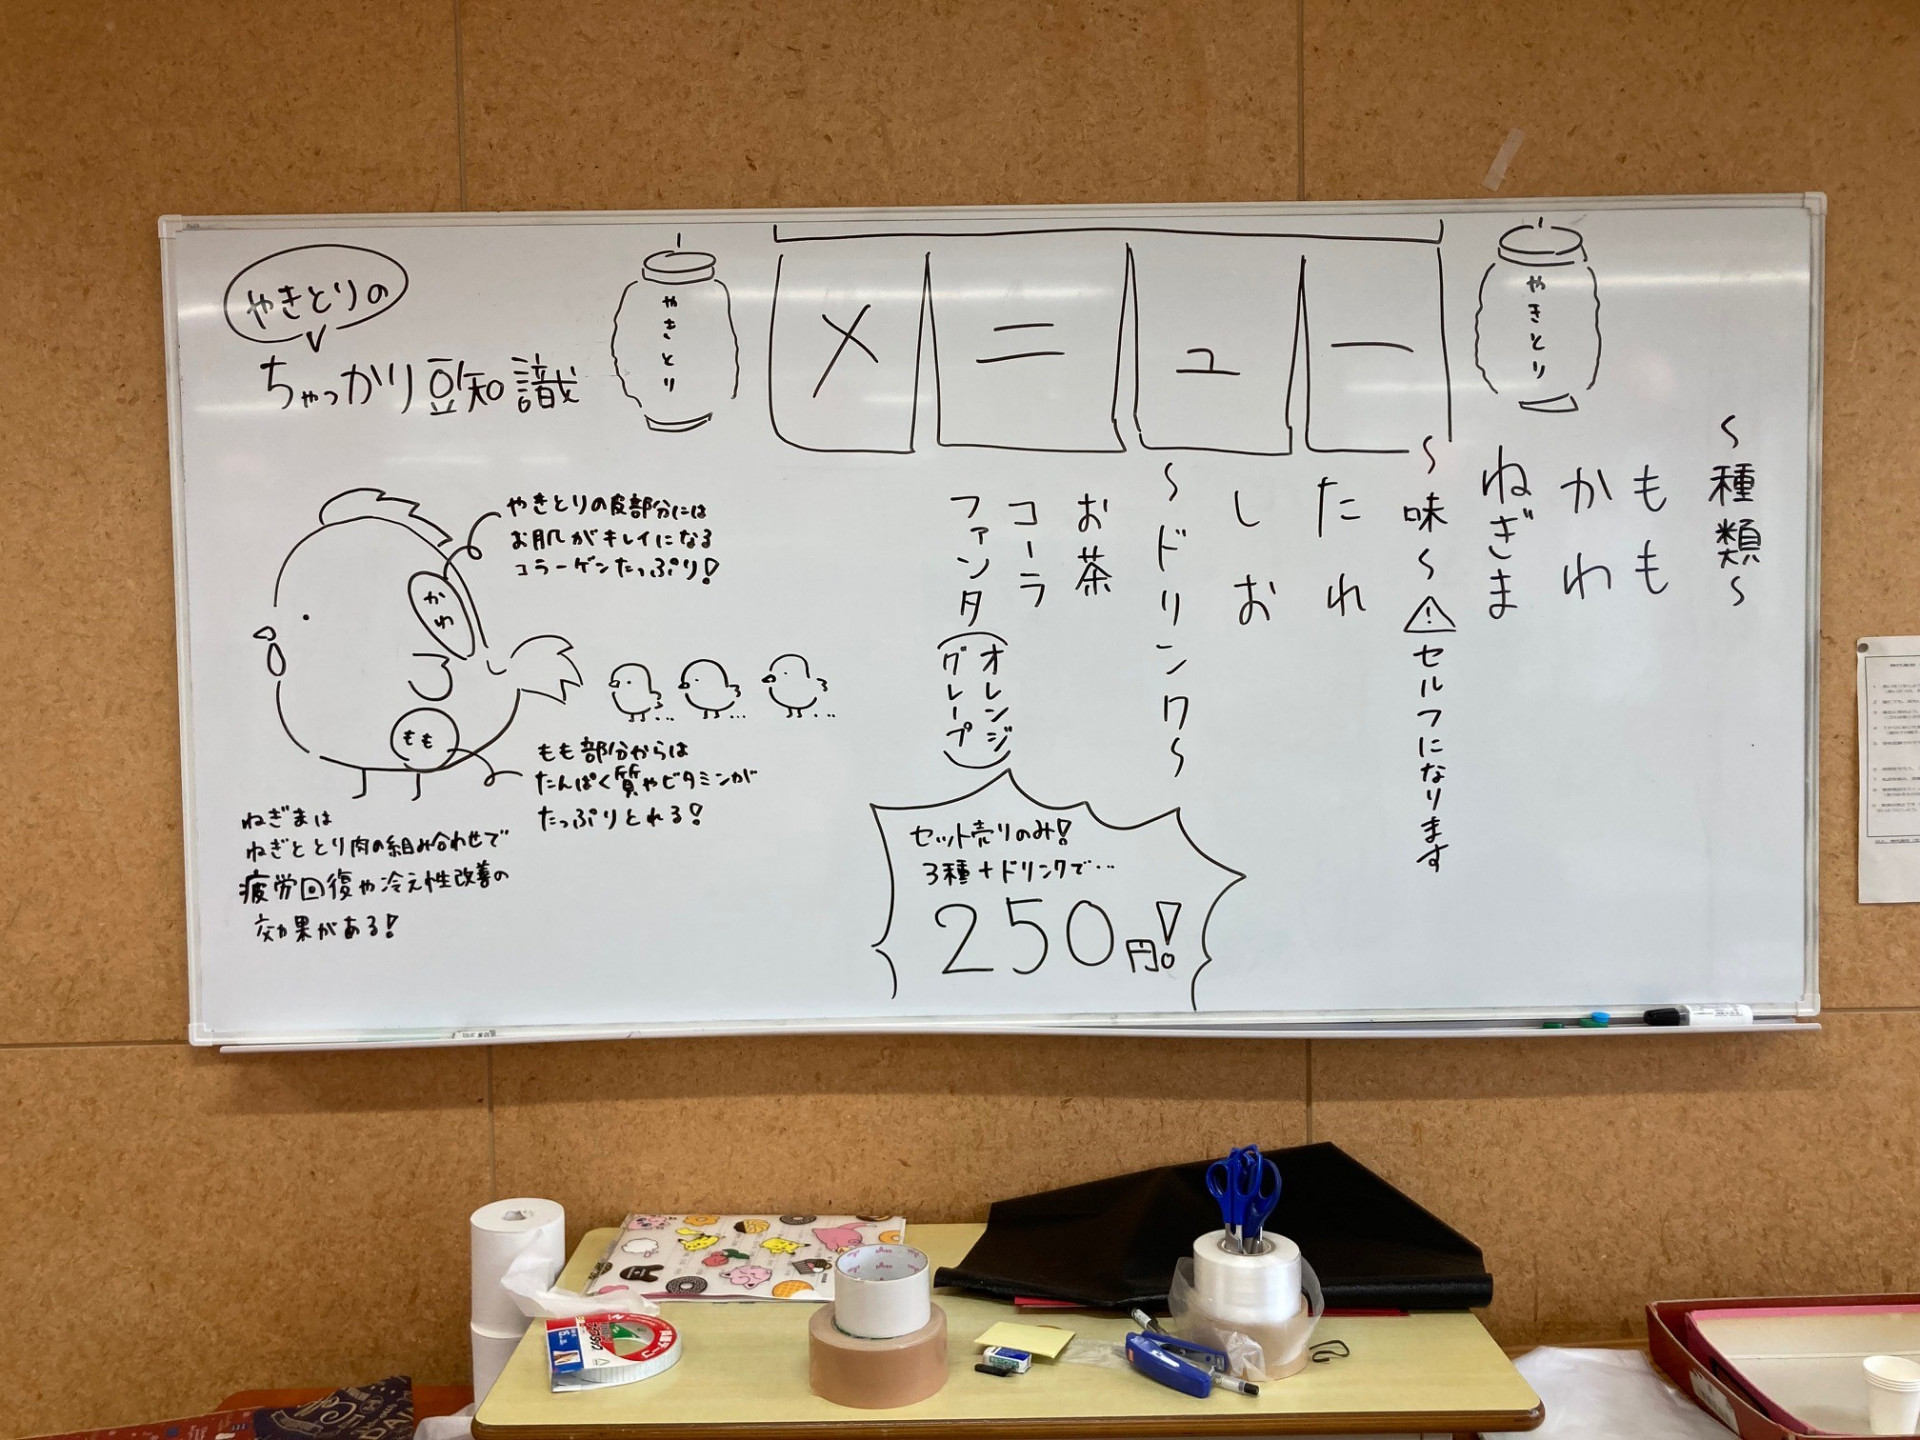 やきとりの
ちゃっかり豆知識
やきとり
メニュー
やきとり
〜種類〜
もも
かわ
ねぎま
〜味〜⚠セルフになります
たれ
しお
〜ドリンク〜
お茶
コーラ
ファンタ(オレンジ
グレープ)
やきとりの皮部分には
お肌がキレイになる
コラーゲンたっぷり!
かわ
もも
もも部分からは
たんぱく質やビタミンが
たっぷりとれる!
ねぎまは
ねぎととり肉の組み合わせで
疲労回復や冷え性改善の
効果がある!
セット売りのみ!
3種+ドリンクで…
250円!